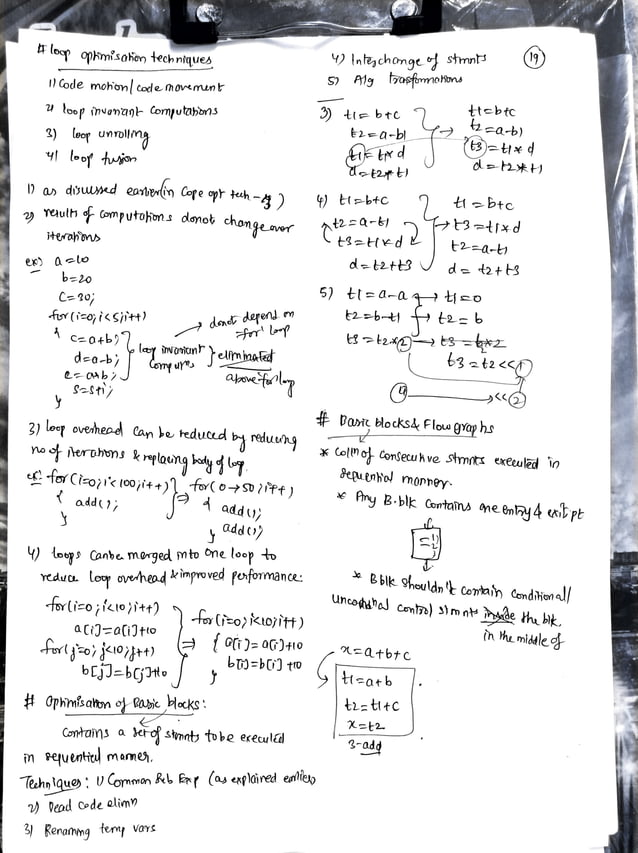 # loop optimisation techniques
1) Code motion/code movement
2) loop invariant computations
3) loop unrolling
4) loop fusion
1) as discussed earlier (in Cope opt tech - 3)
2) results of computations donot change over
iterations
ex) a=10
b=20
c=30;
for(i=0;i<5;i++)
{ c=a+b;
d=a-b;
e=a*b;
s=s+i;
}
loop invariant
computns
donot depend on
'for' loop
eliminated
above 'for' loop
3) loop overhead can be reduced by reducing
no of iterations & replacing body of loop.
ex: for(i=0;i<100;i++) ⇒ for(0→50;i++)
{ {
add(); add();
} add();
}
4) loops canbe merged into one loop to
reduce loop overhead & improved performance:
for(i=0;i<10;i++)
a[i]=a[i]+10
for(j=0;j<10;j++)
b[j]=b[j]+10
⇒ for(i=0;i<10;i++)
{ a[i]=a[i]+10
b[i]=b[i]+10
# Optimisation of Basic blocks:
Contains a set of stmnts to be executed
in sequential manner.
Techniques: 1) Common Sub Exp (as explained earlier)
2) Dead code elimn
3) Renaming temp vars
19
4) Interchange of stmnts
5) Alg transformations
3) t1=b+c t1=b+c
t2=a-b) → t2=a-b)
t1=t1*d t3=t1*d
d=t2*t1 d=t2*t1
4) t1=b+c t1=b+c
t2=a-t1 → t3=t1*d
t3=t1*d t2=a-t1
d=t2+t3 d=t2+t3
5) t1=a-a → t1=0
t2=b-t1 → t2=b
t3=t2*2 → t3=b*2
t3=t2<<1
4 → <<2
# Basic blocks & Flow graphs
* Colln of consecutive stmnts executed in
sequential manner.
* Any B.blk contains one entry & exit pt
* B blk shouldn't contain conditional/
unconditional control stmnts inside the blk.
in the middle of
x=a+b+c
t1=a+b
t2=t1+c
x=t2
3-add